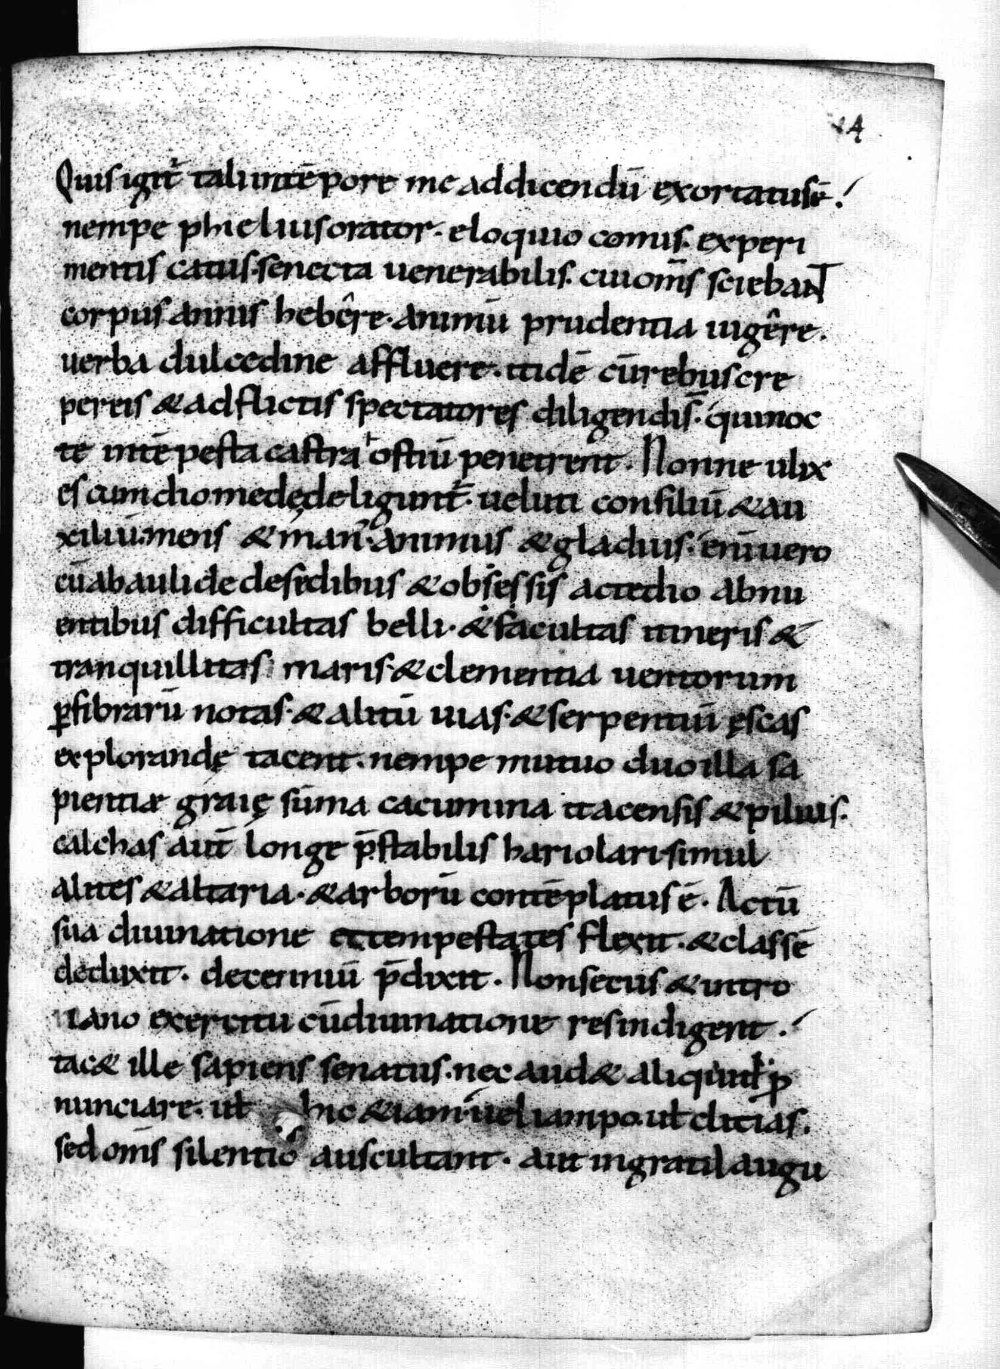 4
Quis igit̄ tali intēpore me addicendū exortatus ē.
nempe phieliuis orator. eloquio comis. experi
mentis catus. senecta uenerabilis. cui om̄s sciebant
corpus annis hebêre. animū prudentia uigêre.
uerba dulcedine affluere. itidē cū rebus cre
pereis & adflictis spectatores diligendis̄. qui noc
te intēpesta castra ostiū penetrent. Nonne ulix
es cum diomedę deligunt̄. ueluti consiliū & au
xiliū. mens & man̄. animus & gladius. enīuero
cū ab aulide desedibus & obsessis ac tedio abnu
entibus difficultas belli. & facultas itineris &
tranquillitas maris. & clementia uentorum
ꝑ fibrarū notas. & alitū uias. & serpentiū ęscas
explorandę tacent. nempe mutuo duo illa sa
pientiæ graię sūma cacumina itacensis & pilius.
calchas aut̄ longe p̄stabilis hariolari. simul
alites & altaria. & arborū contēplatus ē. Actū
sua diuinatione et tempestates flexit. & classē
deduxit. decenniū p̄dixit. Non secus & in tro
iano exercitu cū diuinatione res indigent.
tac& ille sapiens senatus. nec aud& aliquit ꝓ
nunciare. ut hic & iam. uel iampo. ut clitias.
sed om̄s silentio auscultant. aut ingrata augu